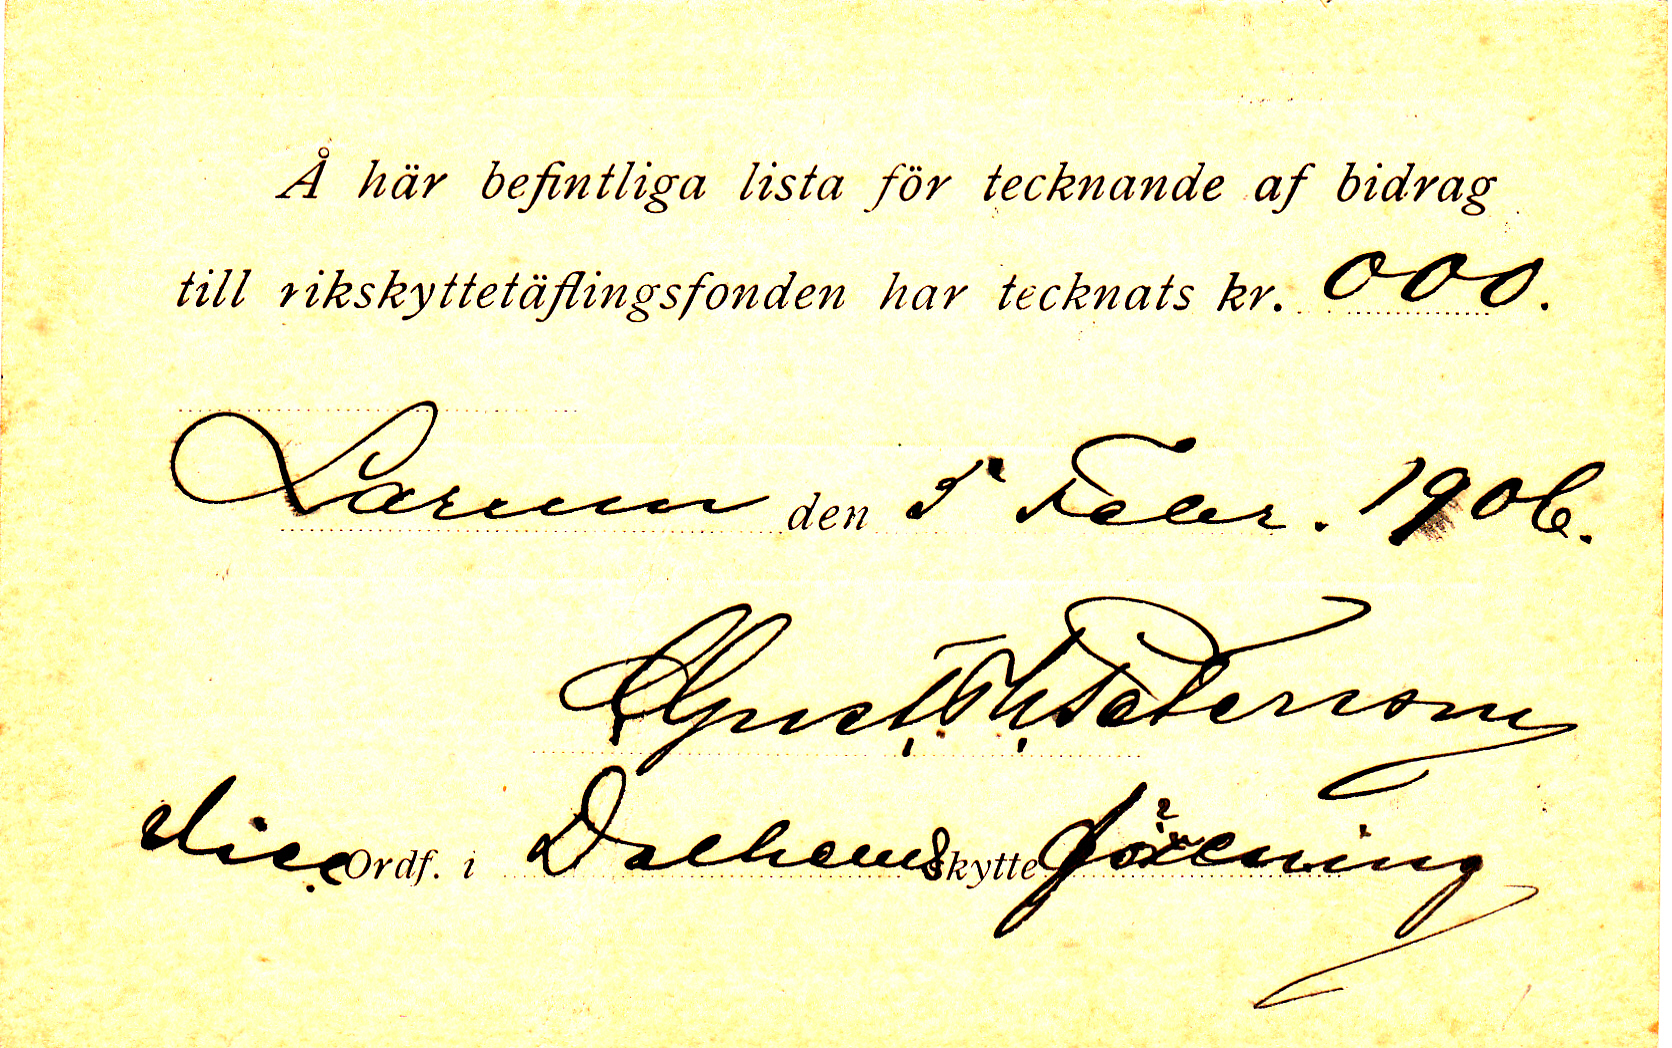 Å här befintliga lista för tecknande af bidrag
till rikskyttetäflingsfonden har tecknats kr. 000.
Larum den 5 Febr. 1906.
Gust. Petersson
Vice Ordf. i Dalhems skytteförening